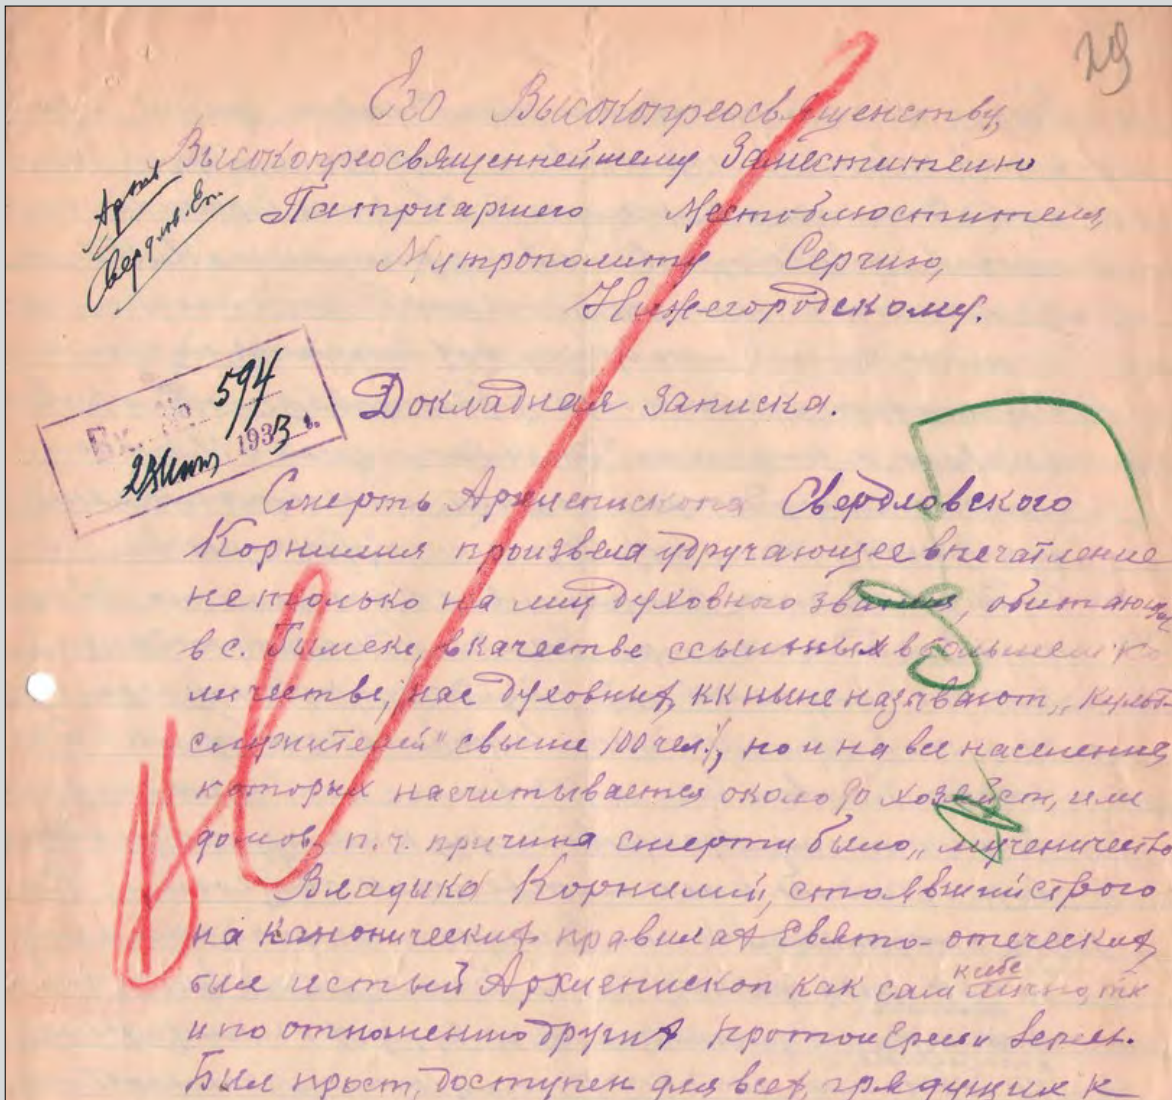 29
Его Высокопреосвященству,
Высокопреосвященнейшему Заместителю
Патриаршего Местоблюстителя,
Митрополиту Сергию,
Нижегородскому.
Архив
Свердлов. Еп.
Вх. № 594
1933 г.
Докладная Записка.
Смерть Архиепископа Свердловского
Корнилия произвела удручающее впечатление
не только на лиц духовного звания, обитающих
в с. в качестве ссыльных в большем ко
личестве, нас духовных, кк ныне называют „культ
служителей" свыше 100 чел., но и на все население
которых насчитывается около 90 хозяйст, или
домов, п.ч. причина смерти было „мученичество
Владыка Корнилий, стоявший строго
на канонических правилах Свято-отеческих,
был истый Архиепископ как сам к себе лично, тк
и по отношению других протоиереи и
Был прост, доступен для всех, грядущих к